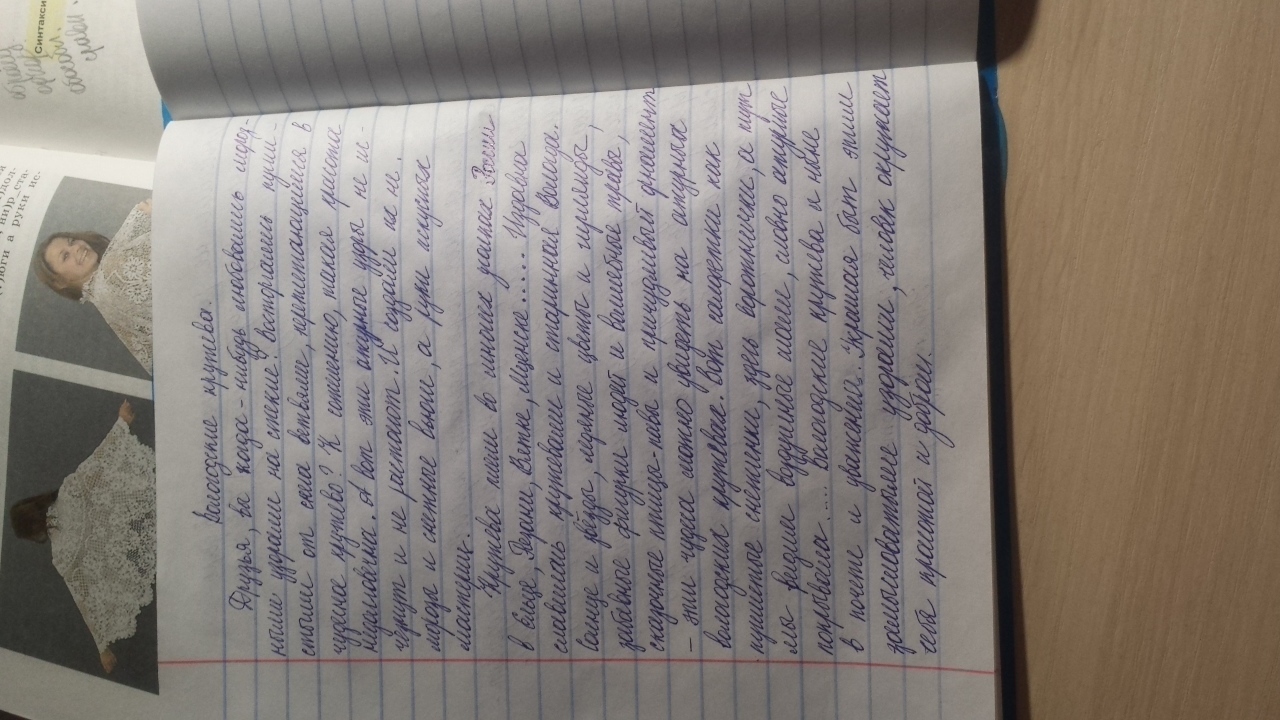 Вологодские кружева.
Друзья, вы когда-нибудь любовались мороз-
ными узорами на стекле? восторгались пуши-
стыми от снега ветвями, переплетающимися в
чудное кружево? К сожалению, такая красота
недолговечна. А вот эти ажурные узоры не ис-
чезнут и не растают. И создали их не
мороз и снежные вьюги, а руки искусных
мастериц.
Кружева плели во многих уголках России
в Ельце, Рязани, Вятке, Мценске..... Издавна
славилась кружевами и старинная Вологда.
Солнце и звёзды, ледяные цветы и
забавные фигурки людей и волшебные травы,
сказочные птицы-павы и причудливый орнамент
– эти чудеса можно увидеть на ажурных
вологодских кружевах. Вот салфетки как
пушистые снежинки, здесь воротнички, а тут
мы видим воздушное словно ажурные
покрывала.... Вологодские кружева и ныне
в почёте и уважении. Украшая быт этими
замысловатыми узорами, человек окружает
себя красотой и добром.
Синтакси
ноги а руки ис-